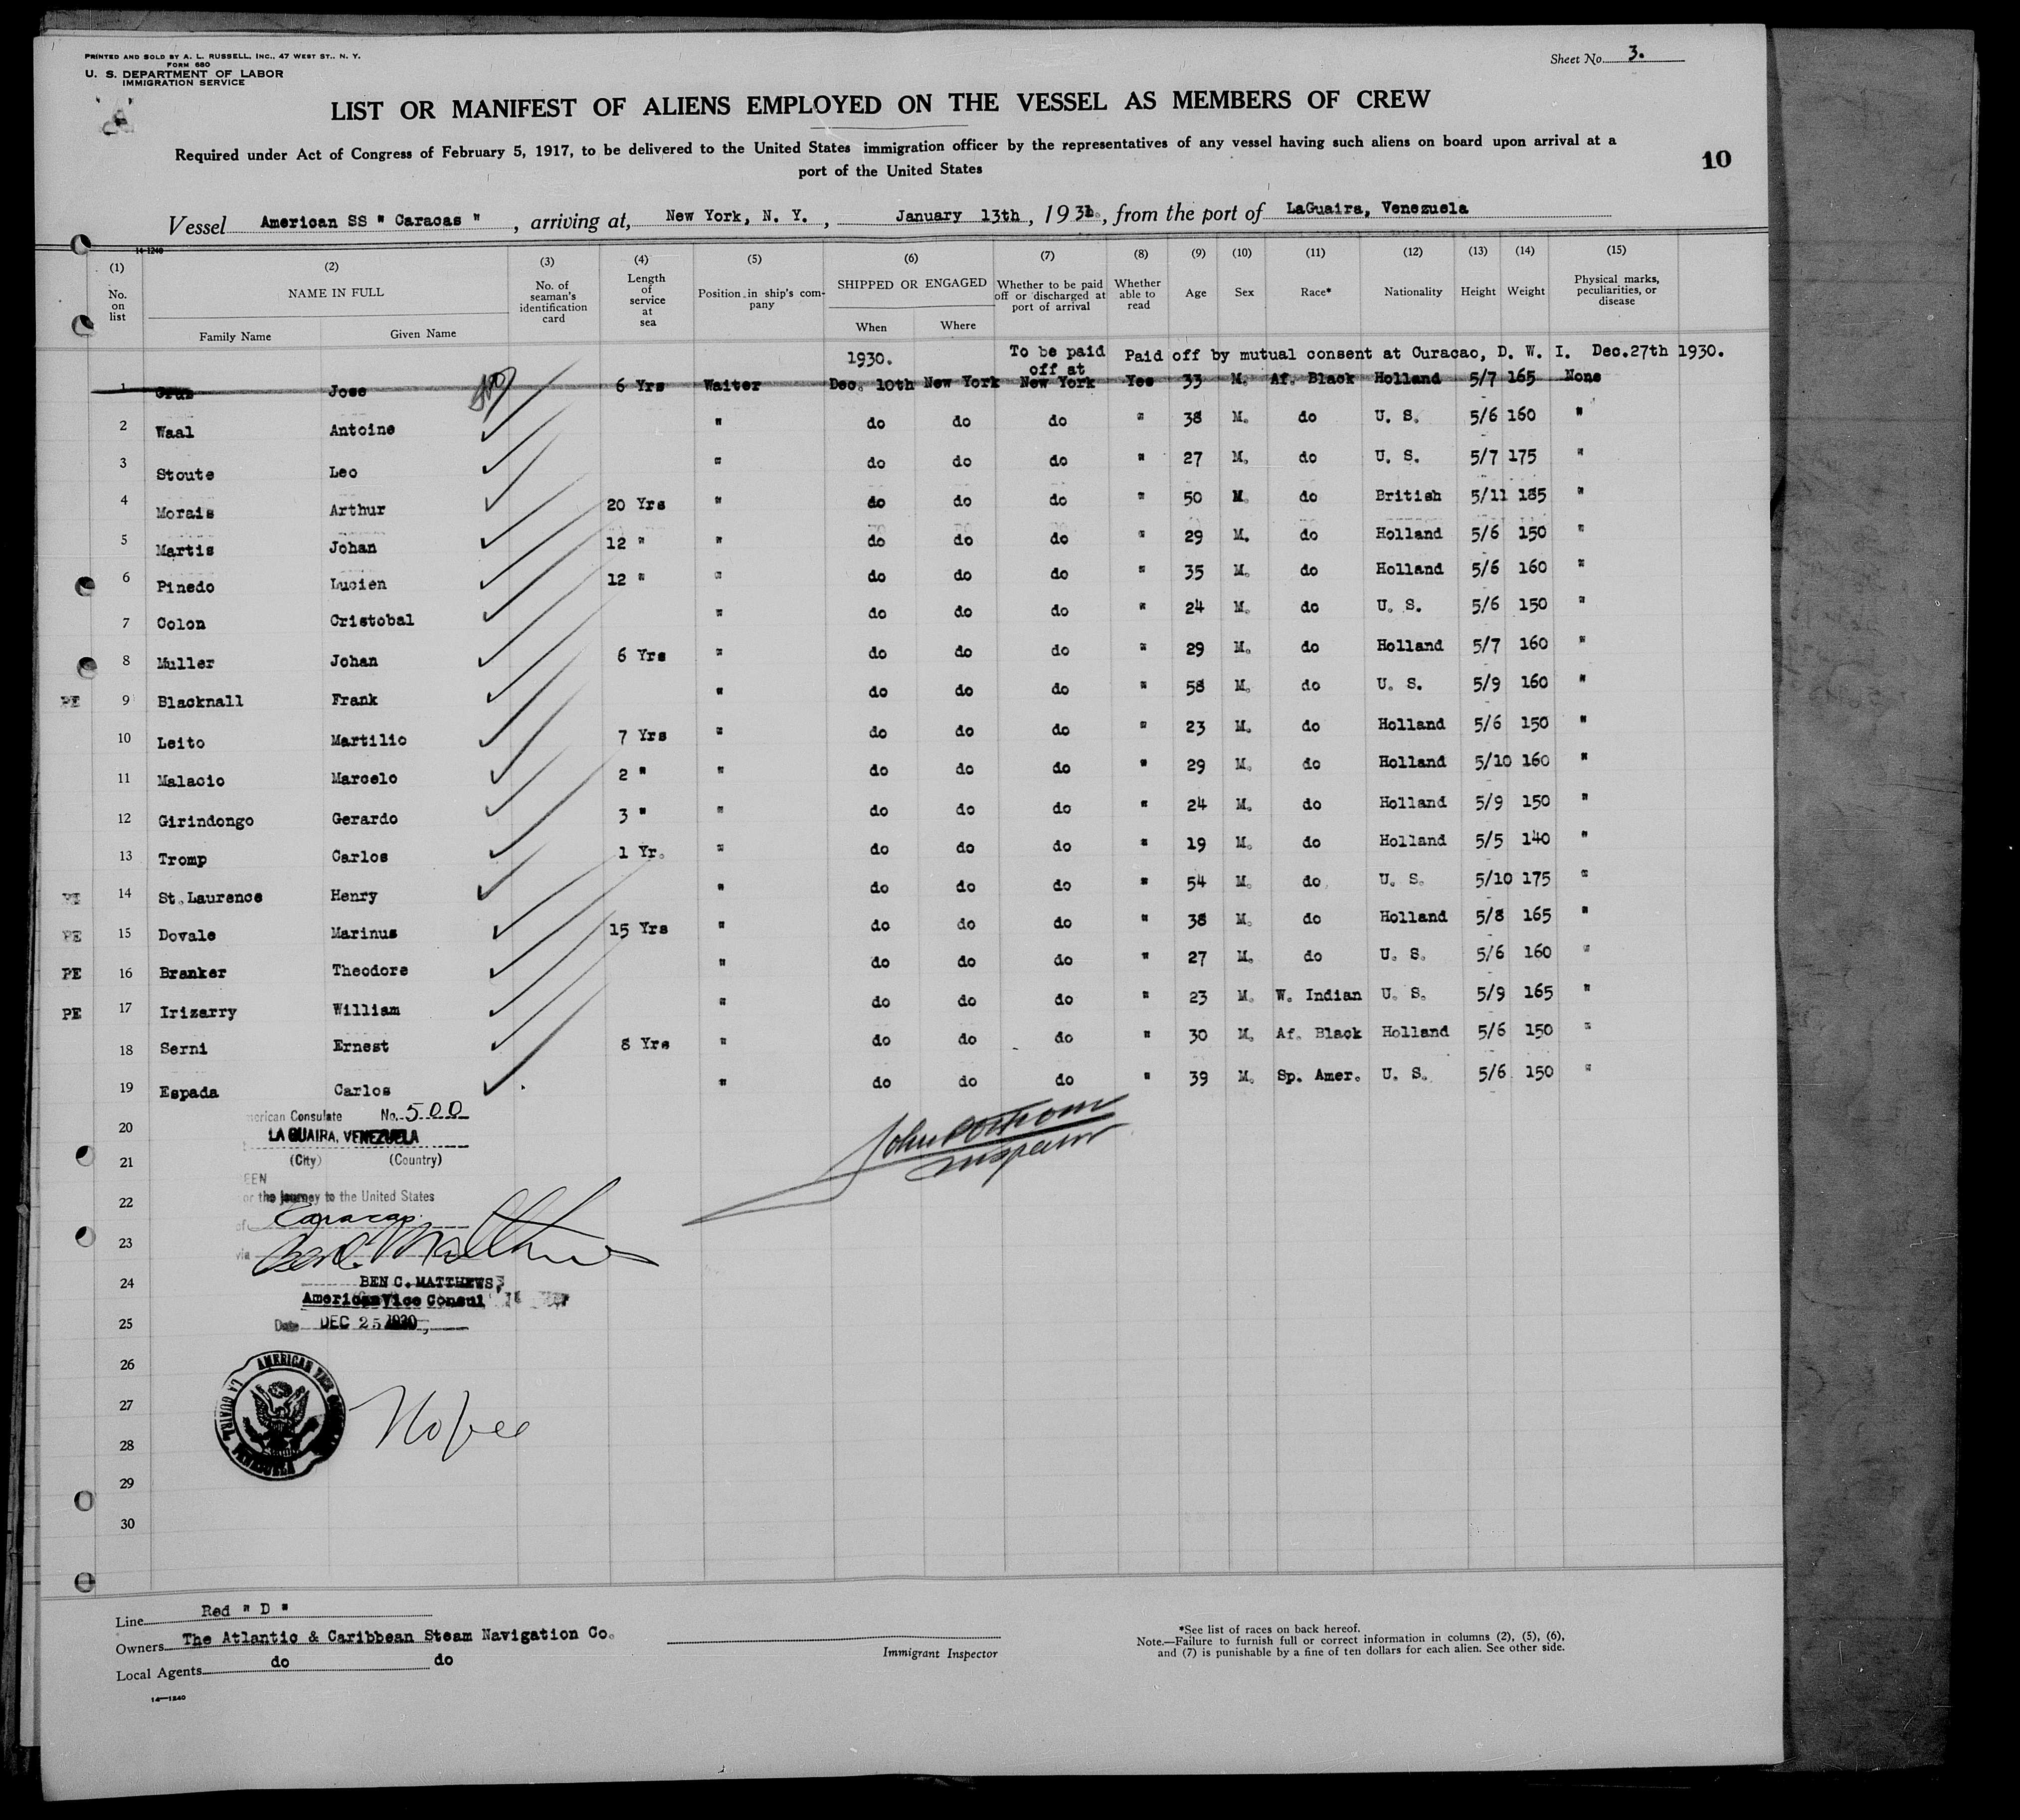 PRINTED AND SOLD BY A. L. RUSSELL, INC., 47 WEST ST., N. Y.
FORM 680
U. S. DEPARTMENT OF LABOR
IMMIGRATION SERVICE
Sheet No. 3.
LIST OR MANIFEST OF ALIENS EMPLOYED ON THE VESSEL AS MEMBERS OF CREW
Required under Act of Congress of February 5, 1917, to be delivered to the United States immigration officer by the representatives of any vessel having such aliens on board upon arrival at a
port of the United States
10
Vessel American SS " Caracas ", arriving at, New York, N. Y., January 13th, 1931, from the port of LaGuaira, Venezuela
14-1240
(1) No. on list
(2) NAME IN FULL Family Name Given Name
(3) No. of seaman's identification card
(4) Length of service at sea
(5) Position in ship's company
(6) SHIPPED OR ENGAGED When Where
(7) Whether to be paid off or discharged at port of arrival
(8) Whether able to read
(9) Age
(10) Sex
(11) Race*
(12) Nationality
(13) Height
(14) Weight
(15) Physical marks, peculiarities, or disease
1930. To be paid off at Paid off by mutual consent at Curacao, D. W. I. Dec.27th 1930.
1 Cruz Jose 6 Yrs Waiter Dec. 10th New York New York Yes 33 M. Af. Black Holland 5/7 165 None
2 Waal Antoine " do do do " 38 M. do U. S. 5/6 160 "
3 Stoute Leo " do do do " 27 M. do U. S. 5/7 175 "
4 Morais Arthur 20 Yrs " do do do " 50 M. do British 5/11 185 "
5 Martis Johan 12 " " do do do " 29 M. do Holland 5/6 150 "
6 Pinedo Lucien 12 " " do do do " 35 M. do Holland 5/6 160 "
7 Colon Cristobal " do do do " 24 M. do U. S. 5/6 150 "
8 Muller Johan 6 Yrs " do do do " 29 M. do Holland 5/7 160 "
PE 9 Blacknall Frank " do do do " 58 M. do U. S. 5/9 160 "
10 Leito Martilio 7 Yrs " do do do " 23 M. do Holland 5/6 150 "
11 Malacio Marcelo 2 " " do do do " 29 M. do Holland 5/10 160 "
12 Girindongo Gerardo 3 " " do do do " 24 M. do Holland 5/9 150 "
13 Tromp Carlos 1 Yr. " do do do " 19 M. do Holland 5/5 140 "
14 St.Laurence Henry " do do do " 54 M. do U. S. 5/10 175 "
PE 15 Dovale Marinus 15 Yrs " do do do " 38 M. do Holland 5/8 165 "
PE 16 Branker Theodore " do do do " 27 M. do U. S. 5/6 160 "
PE 17 Irizarry William " do do do " 23 M. W. Indian U. S. 5/9 165 "
18 Serni Ernest 8 Yrs " do do do " 30 M. Af. Black Holland 5/6 150 "
19 Espada Carlos " do do do " 39 M. Sp. Amer. U. S. 5/6 150 "
20
21
22
23
24
25
26
27
28
29
30
merican Consulate No. 500
LA GUAIRA, VENEZUELA
(City) (Country)
EEN
or the journey to the United States
of Caracas
via
Ben C. Matthews
BEN C. MATTHEWS,
American Vice Consul
Date DEC 25 1930
AMERICAN VICE
LA GUAIRA VENEZUELA
No fee
Inspector
Line Red " D "
Owners The Atlantic & Caribbean Steam Navigation Co.
Local Agents do do
Immigrant Inspector
*See list of races on back hereof.
Note.—Failure to furnish full or correct information in columns (2), (5), (6),
and (7) is punishable by a fine of ten dollars for each alien. See other side.
14—1240